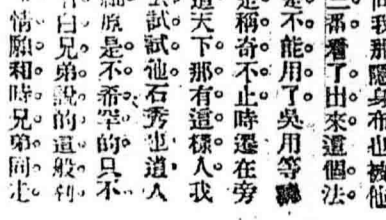 我那隱身布也被他
都看了出來這個法
是不能用了吳用等聽
是稱奇不止時遷在旁
道天下那有這樣人我
試試他石秀也道人
原是不希罕的只不
曰兄弟說的這般利
情願和時兄弟同走